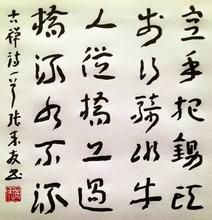 空手把鋤頭
步行騎水牛
人從橋上過
橋流水不流
古禅詩一首 張